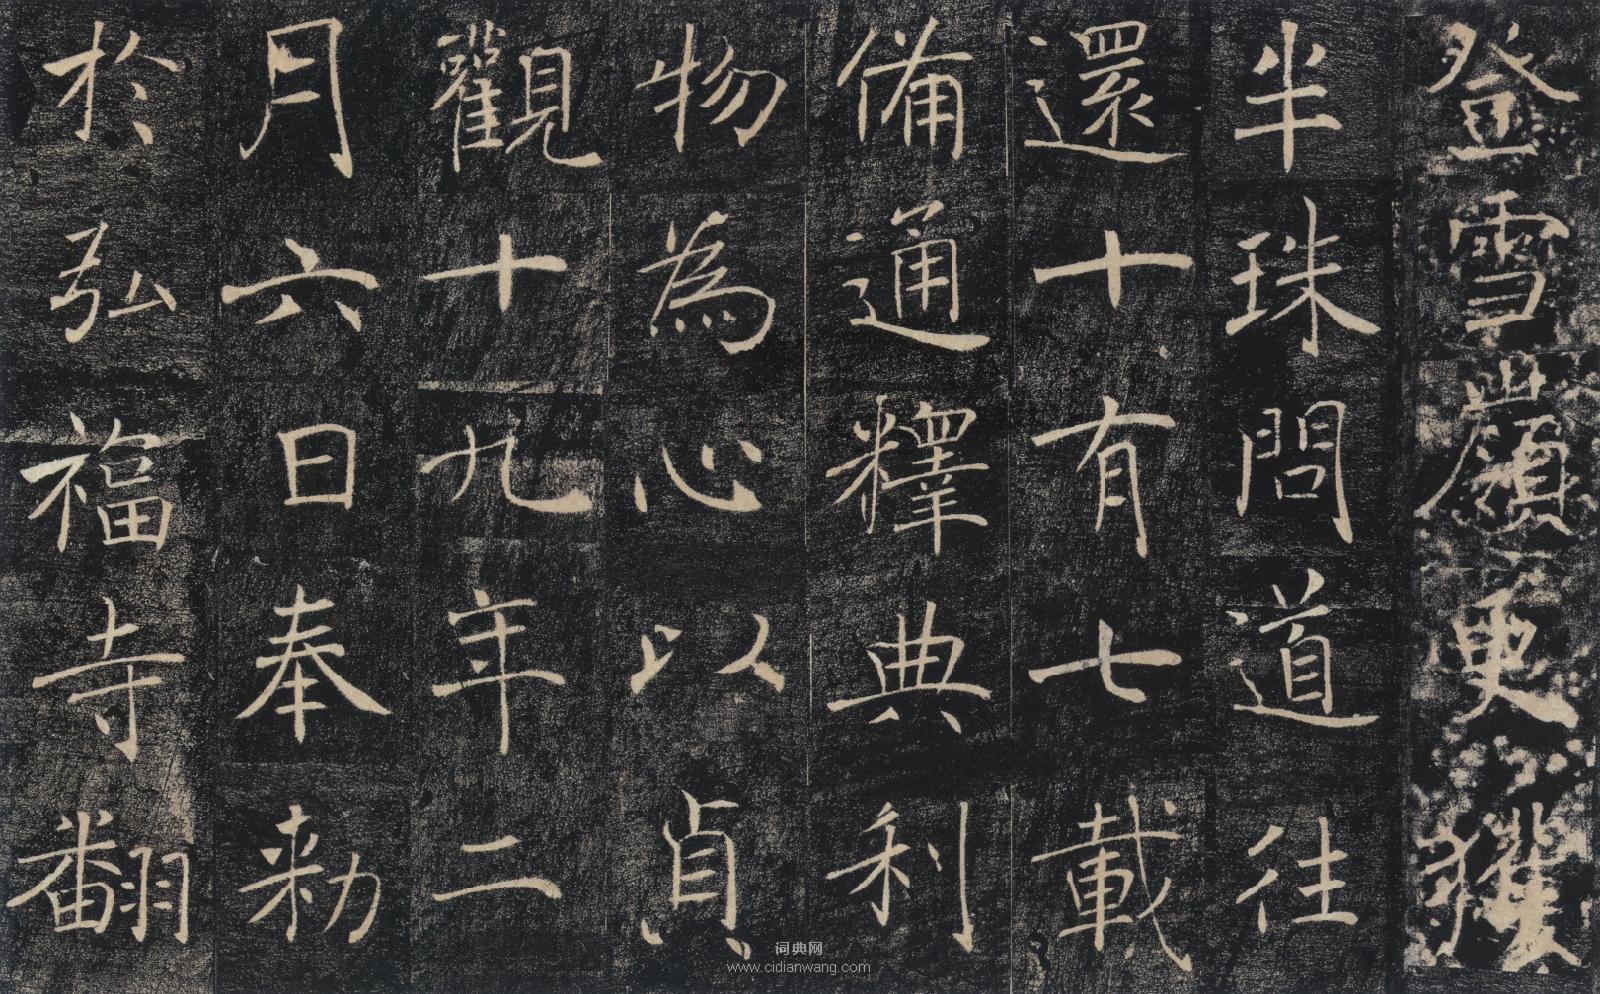 登雪嶺更獲
半珠問道往
還十有七載
備通釋典利
物為心以貞
觀十九年二
月六日奉勑
於弘福寺翻
词典网
www.cidianwang.com